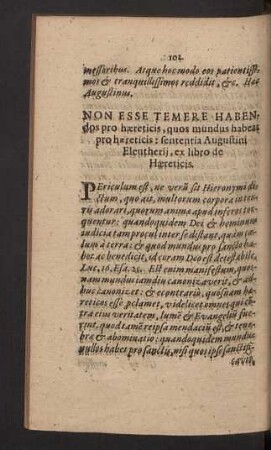 102
messoribus. Atque hoc modo eos patientissi-
mos & tranquillissimos reddidit, &c. Hæc
Augustinus.
NON ESSE TEMERE HABEN-
dos pro hæreticis, quos mundus habeat
pro hæreticis: sententia Augustini
Eleutherij, ex libro de
Hæreticis.
PEriculum est, ne verũ sit Hieronymi di-
ctum, quo ait, multorum corpora in ter-
ris adorari, quorum animæ apud inferos tor-
quentur: quandoquidem Dei & hominum
iudicia tam procul inter se distant, quàm cœ-
lum à terra: & quod mundus pro sancto ha-
bet ac benedicit, id coram Deo est detestabile,
Luc. 16. Esa. 25. Est enim manifestum, quos-
nam mundus iamdiu canonizaverit, & ad-
huc canonizet: & è contrariò, quosnam hæ-
reticos esse proclamet, videlicet omnes qui ex-
tra eius veritatem, lumẽ & Evangeliũ fue-
rint, quod tamẽ reipsa mendaciũ est, & tene-
bræ & abominatio: quandoquidem mundus
nullos habet pro sanctis, nisi quos ipse sanctifi-
cavit,